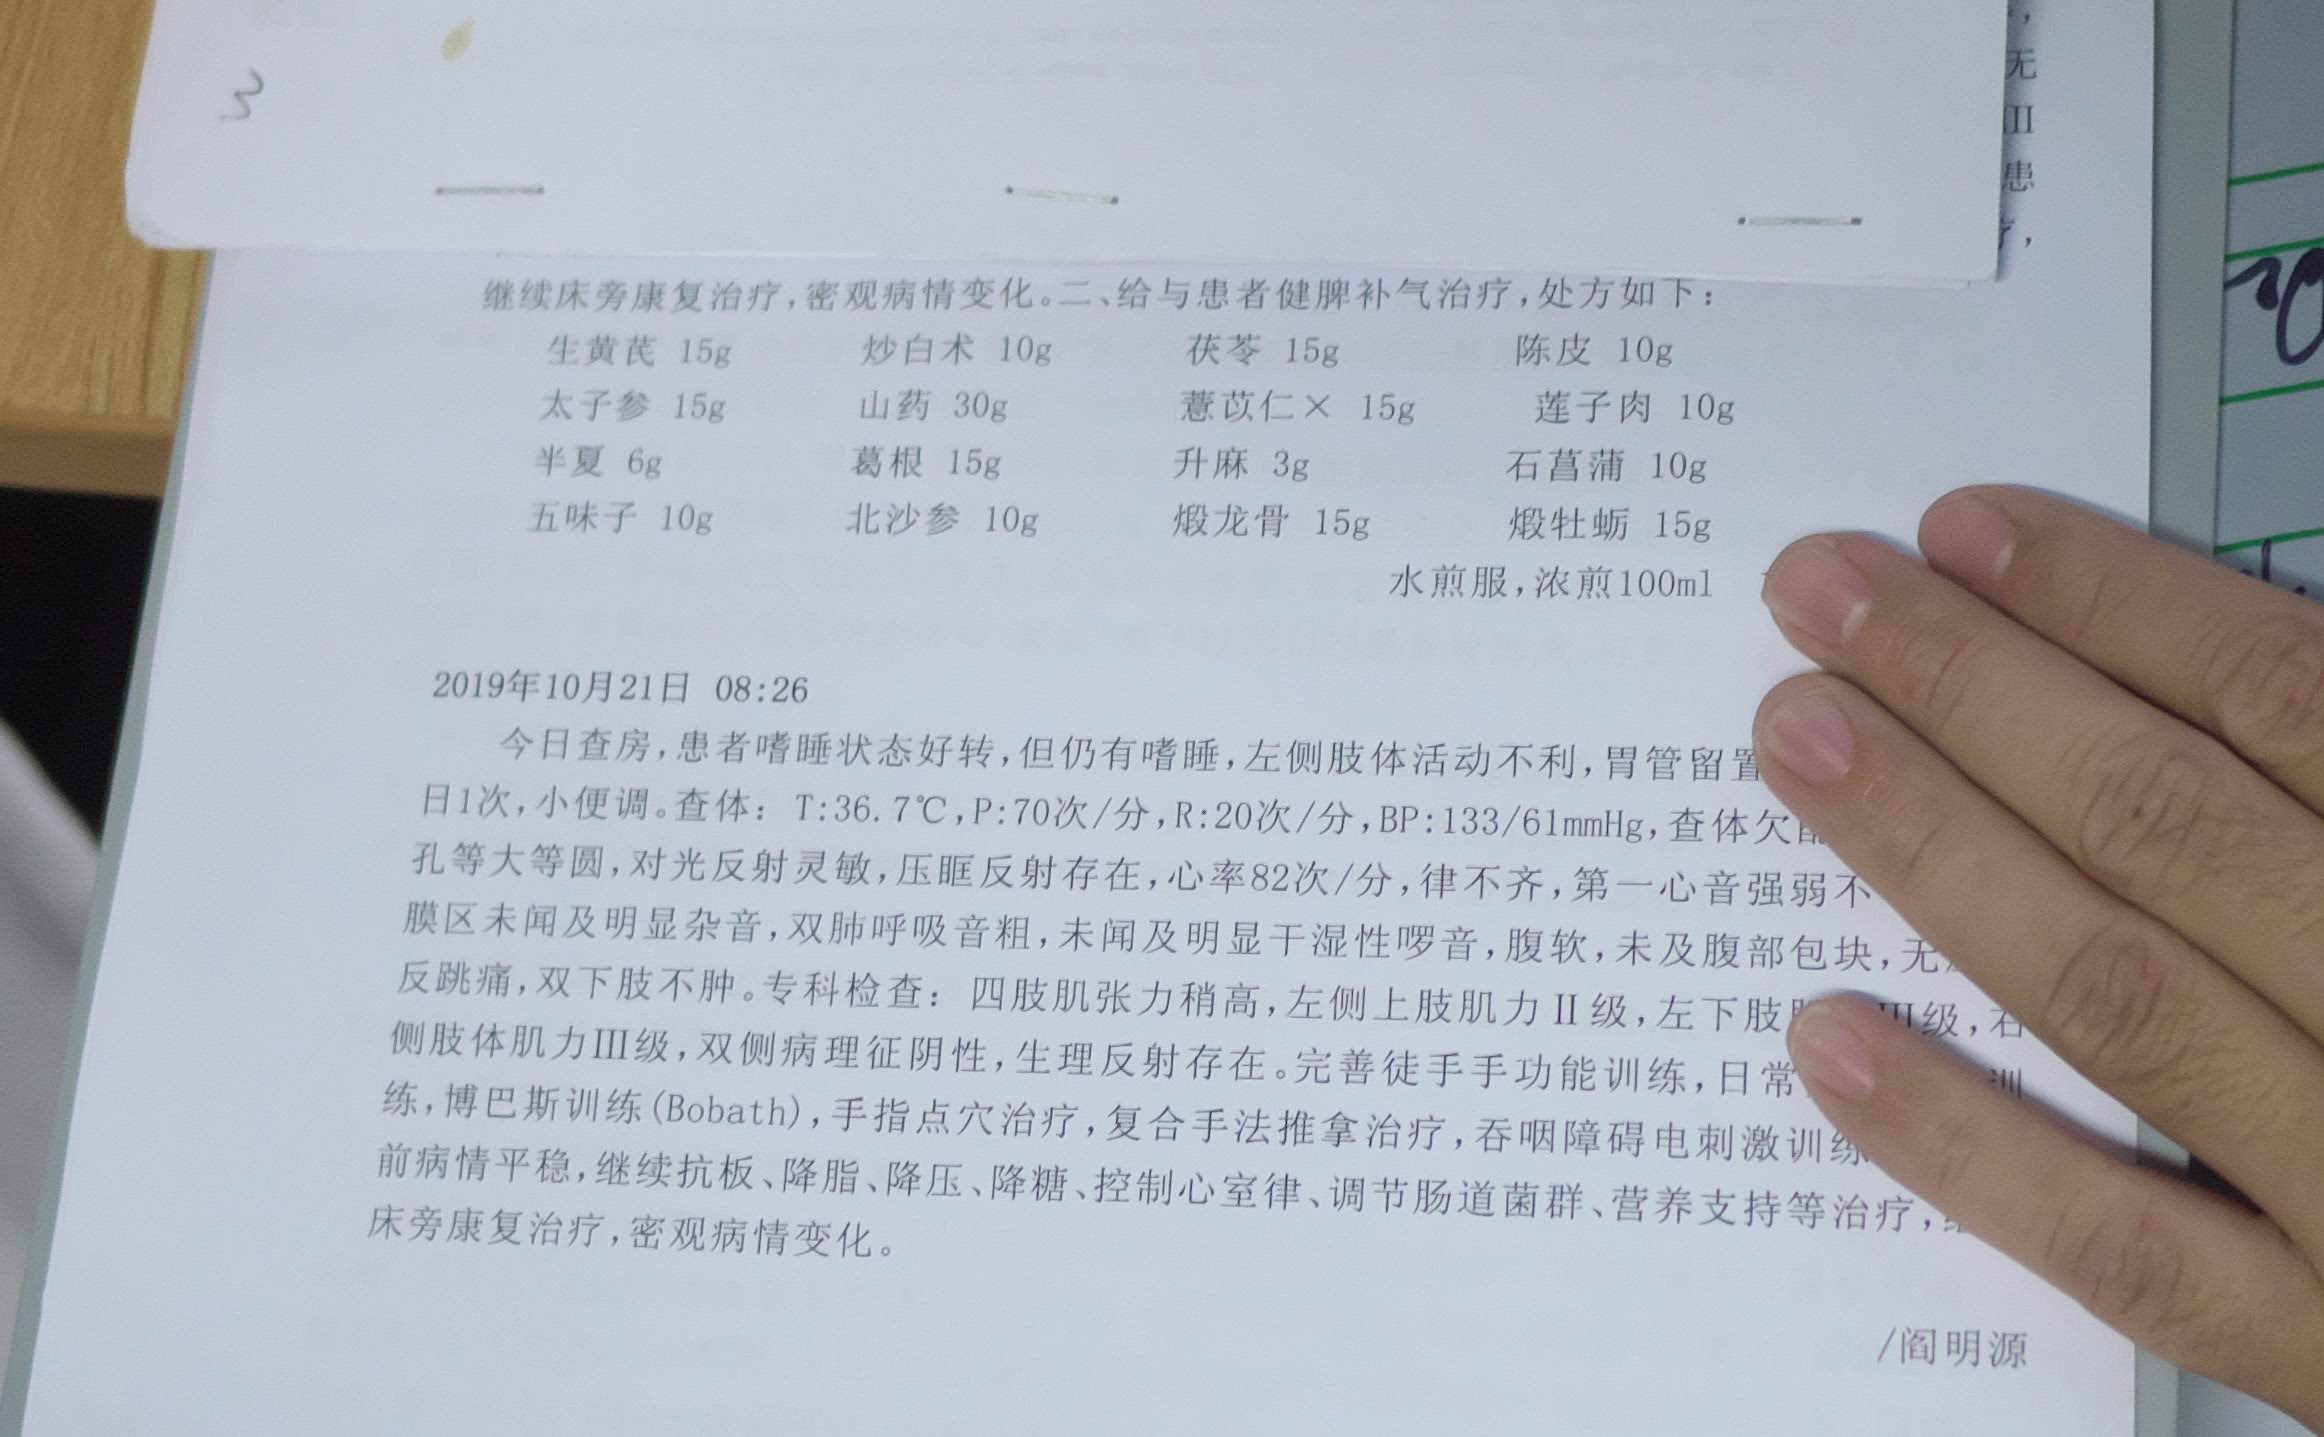 3
无
II
患
疗，
继续床旁康复治疗，密观病情变化。二、给与患者健脾补气治疗，处方如下：
生黄芪 15g 炒白术 10g 茯苓 15g 陈皮 10g
太子参 15g 山药 30g 薏苡仁× 15g 莲子肉 10g
半夏 6g 葛根 15g 升麻 3g 石菖蒲 10g
五味子 10g 北沙参 10g 煅龙骨 15g 煅牡蛎 15g
水煎服，浓煎100ml
2019年10月21日 08:26
今日查房，患者嗜睡状态好转，但仍有嗜睡，左侧肢体活动不利，胃管留置
日1次，小便调。查体： T:36.7℃，P:70次/分，R:20次/分，BP:133/61mmHg，查体欠
孔等大等圆，对光反射灵敏，压眶反射存在，心率82次/分，律不齐，第一心音强弱不
膜区未闻及明显杂音，双肺呼吸音粗，未闻及明显干湿性啰音，腹软，未及腹部包块，无
反跳痛，双下肢不肿。专科检查： 四肢肌张力稍高，左侧上肢肌力Ⅱ级，左下肢 Ⅲ级，右
侧肢体肌力Ⅲ级，双侧病理征阴性，生理反射存在。完善徒手手功能训练，日常 训
练，博巴斯训练(Bobath)，手指点穴治疗，复合手法推拿治疗，吞咽障碍电刺激训练
前病情平稳，继续抗板、降脂、降压、降糖、控制心室律、调节肠道菌群、营养支持等治疗，
床旁康复治疗，密观病情变化。
/阎明源